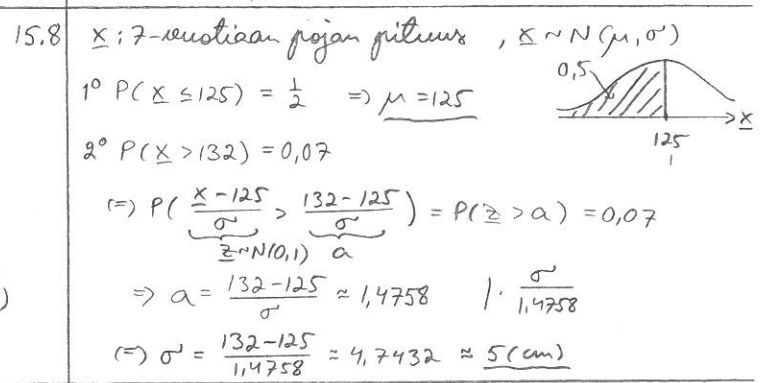 15.8 x : 7-vuotiaan pojan pituus , x ~ N(μ, σ)
0,5
1° P(x ≤ 125) = 1/2 => μ = 125
x
125
2° P(x > 132) = 0,07
(=) P( (x - 125)/σ > (132 - 125)/σ ) = P(z > a) = 0,07
z ~ N(0,1) a
=> a = (132 - 125)/σ ≈ 1,4758 | · σ/1,4758
(=) σ = (132 - 125)/1,4758 ≈ 4,7432 ≈ 5 (cm)
)